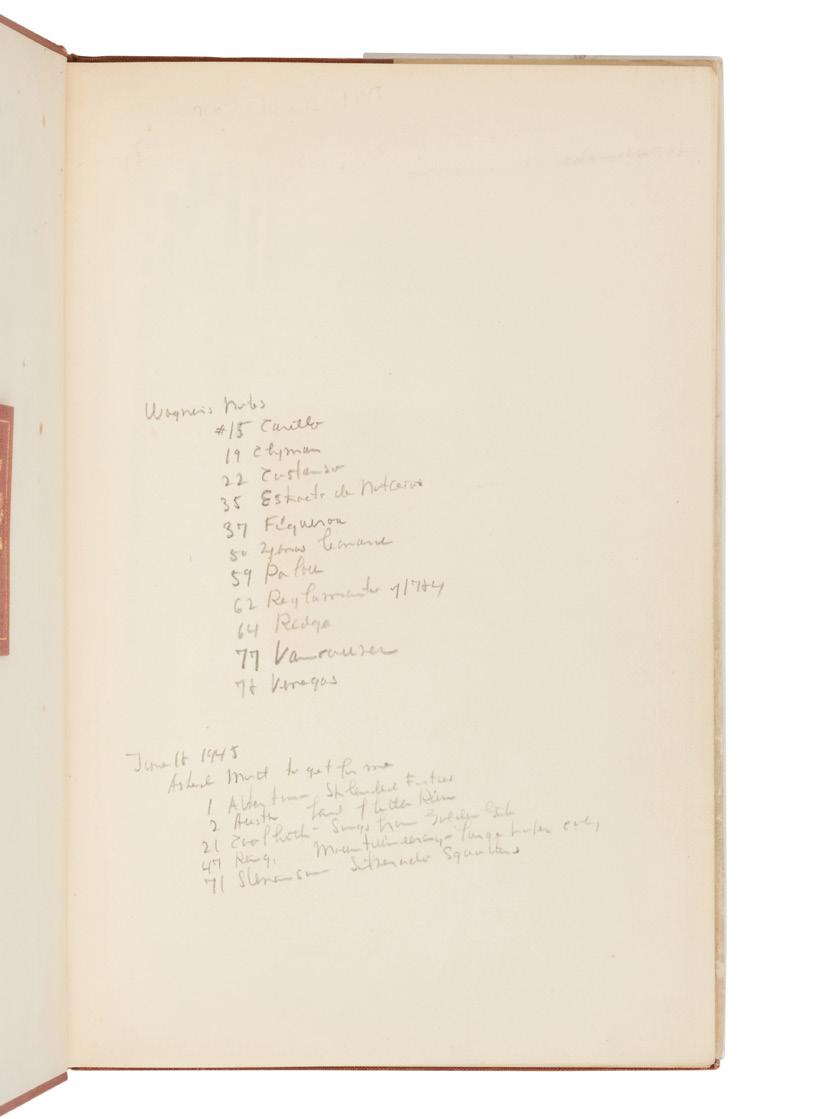 Wagner's Notes
#15 Carillo
19 Clyman
22 Costanso
35 Estracto de Noticias
37 Figueroa
50
59 Palou
62 Reglamento of 1784
64 Ridge
77 Vancouver
78 Venegas
June 18 1945
Asked to get for me
1 Splendid
2 Austin Land of Little Rain
21 Coolbrith - Songs from Golden Gate
47 King. Mountaineering - large paper copy
71 Stevenson Silverado Squatters